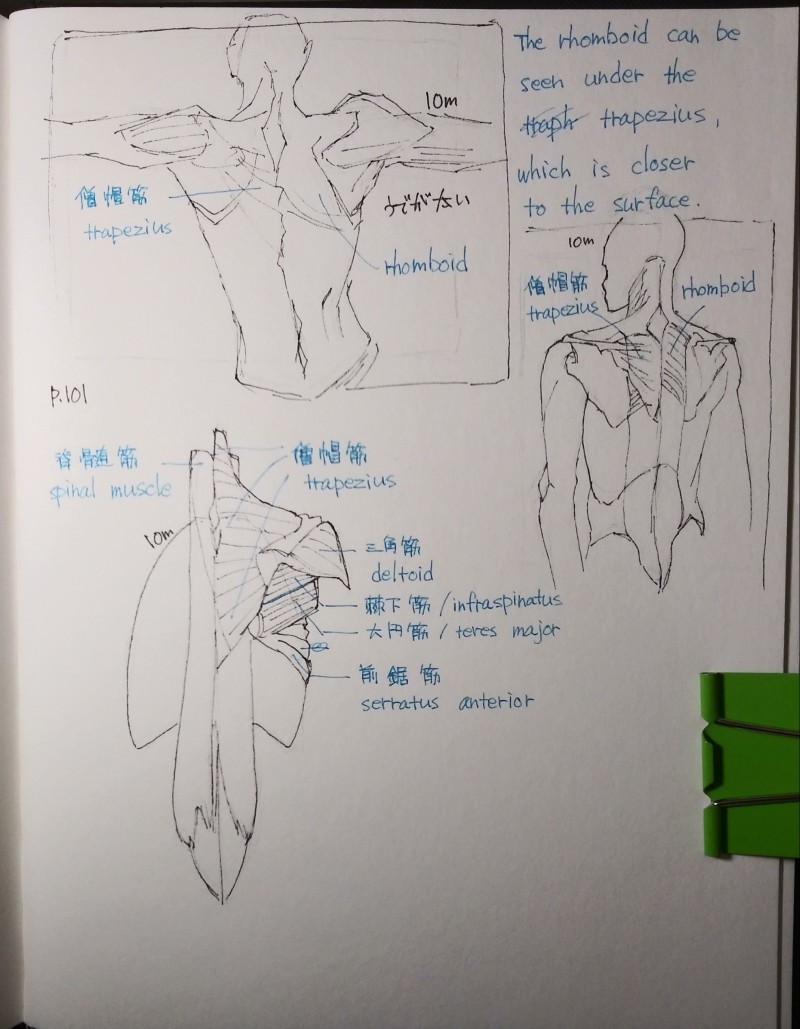 The rhomboid can be
seen under the
traph trapezius,
which is closer
to the surface.
10m
僧帽筋
trapezius
うでがない
rhomboid
10m
僧帽筋
trapezius
rhomboid
p.101
脊髄筋
spinal muscle
僧帽筋
trapezius
10m
三角筋
deltoid
棘下筋/infraspinatus
大円筋/teres major
前鋸筋
serratus anterior